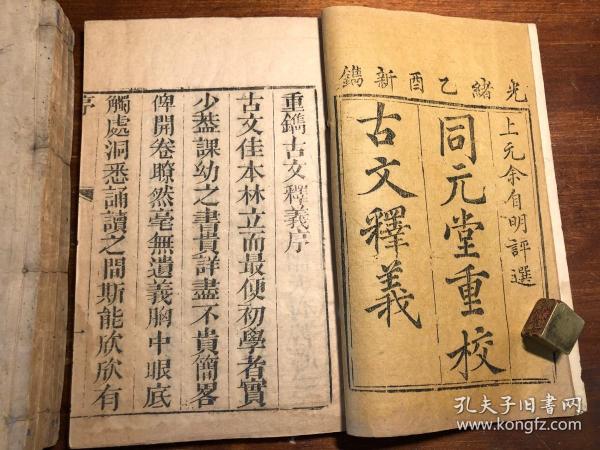 光緒乙酉新鐫
上元余自明評選
同元堂重校
古文釋義
重鐫古文釋義序
古文佳本林立而最便初學者實
少葢課幼之書貴詳盡不貴簡畧
俾開卷瞭然毫無遺義胸中眼底
觸處洞悉誦讀之間斯能欣欣有
序
一
孔夫子旧书网
www.kongfz.com